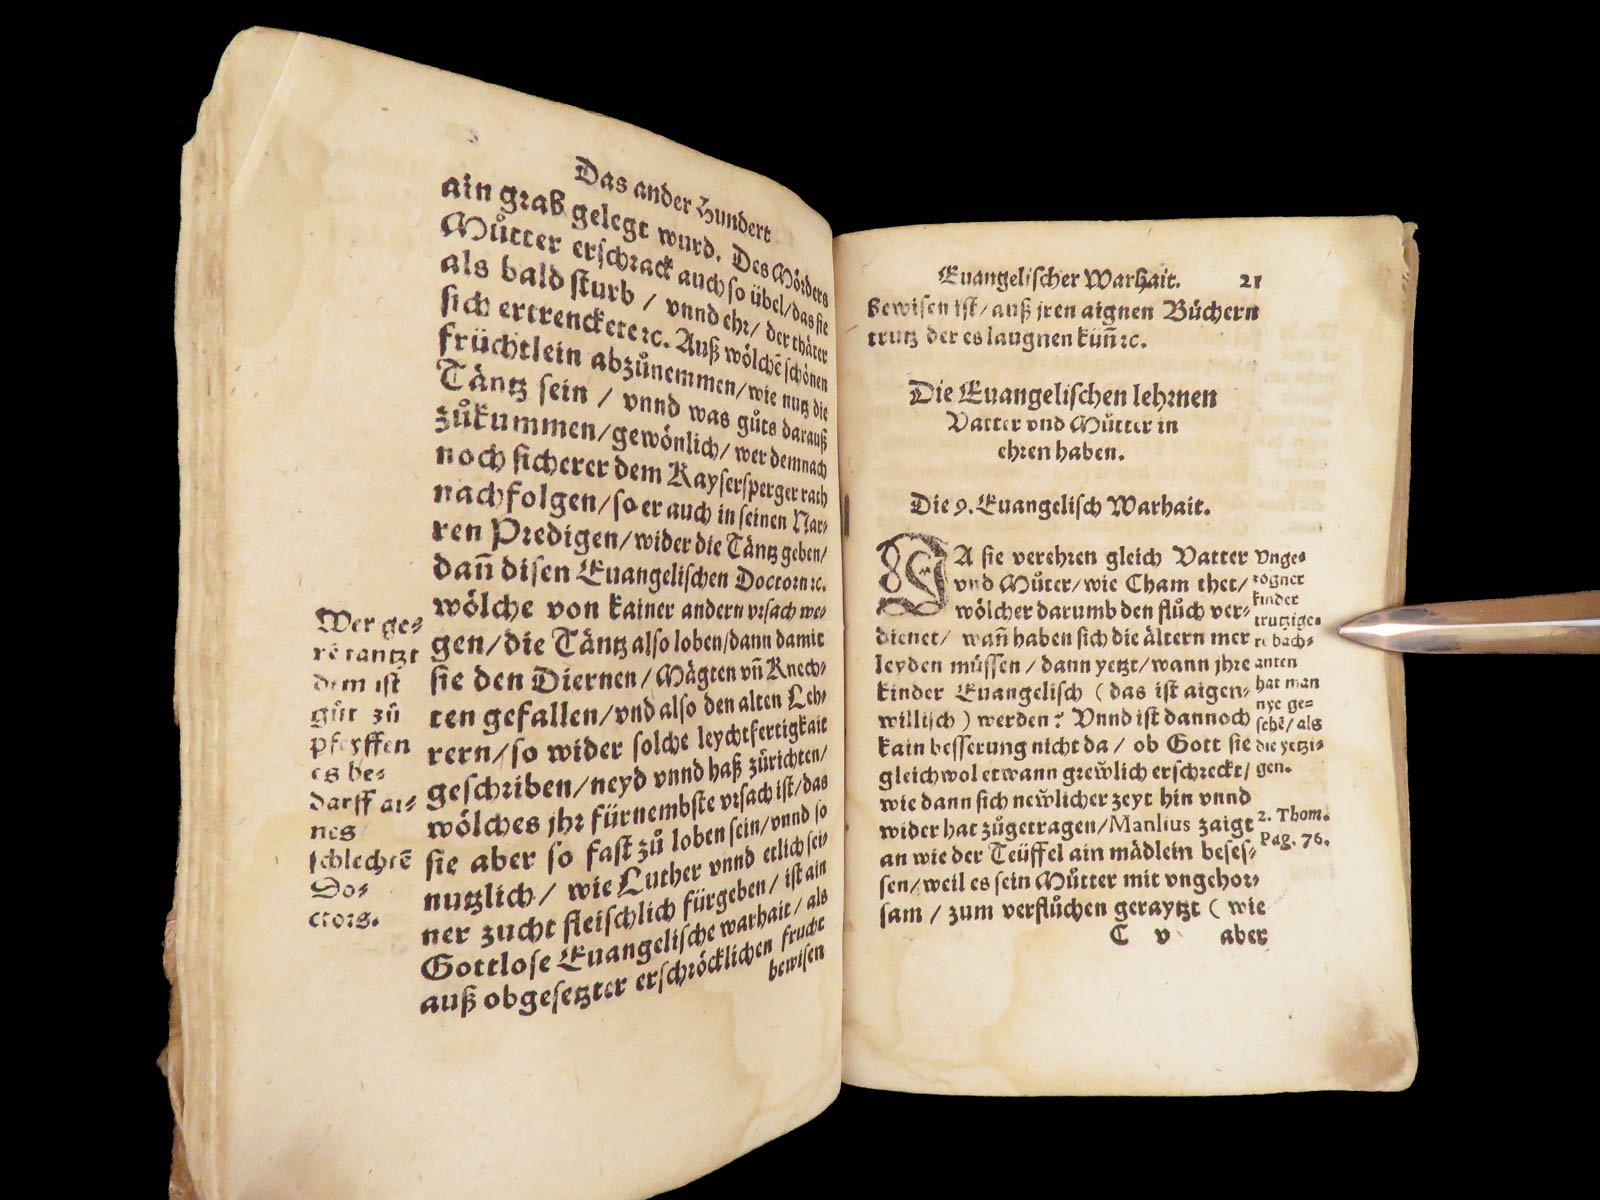 Das ander Hundert
ain graß gelegt wurd. Des Mörders
Můtter erschrack auch so übel/das sie
als bald sturb / vnnd ehr/ der thäter
sich ertrenckete ꝛc. Auß wölchē schönen
früchtlein abzůnemmen/wie nutz die
Täntz sein / vnnd was gůts darauß
zůkummen/gewönlich/wer demnach
noch sicherer dem Kaysersperger rath
nachfolgen/so er auch in seinen Nar⸗
ren Predigen/wider die Täntz geben/
dañ disen Euangelischen Doctorn ꝛc.
wölche von kainer andern vrsach we⸗
gen/die Täntz also loben/dann damit
sie den Diernen/Mägten vñ Knech⸗
ten gefallen/vnd also den alten Leh⸗
rern/so wider solche leychtfertigkait
geschriben/neyd vnnd haß zůrichten/
wölches jhr fürnembste vrsach ist/das
sie aber so fast zů loben sein/vnnd so
nutzlich/ wie Luther vnnd etlich sei⸗
ner zucht fleischlich fürgeben/ ist ain
Gottlose Euangelische warhait/ als
auß obgesetzter erschröcklichen frucht
bewisen
Wer ge⸗
rē tantzt
dem ist
gůt zů
pfeyffen
es be⸗
darff ai⸗
nes
schlechtē
Do⸗
ctors.
Euangelischer Warhait. 21
bewisen ist/auß jren aignen Büchern
trutz der es laugnen küñ ꝛc.
Die Euangelischen lehrnen
Vatter vnd Můtter in
ehren haben.
Die 9. Euangelisch Warhait.
JA sie verehren gleich Vatter
vnd Můter/wie Cham thet/
wölcher darumb den flůch ver⸗
dienet/ wañ haben sich die ältern mer
leyden müssen/dann yetzt/wann jhre
kinder Euangelisch (das ist aigen⸗
willisch) werden? Vnnd ist dannoch
kain besserung nicht da/ ob Gott sie
gleichwol etwann grewlich erschreckt/
wie dann sich newlicher zeyt hin vnnd
wider hat zůgetragen/Manlius zaigt
an wie der Teüffel ain mädlein beses⸗
sen/weil es sein Můtter mit vngehor⸗
sam / zum verflůchen geraytzt ( wie
C v aber
Vnge⸗
zogner
kinder
trutzige⸗
re bach⸗
anten
hat man
nye ge⸗
sehē/als
die yetzi⸗
gen.
2. Thom.
Pag. 76.